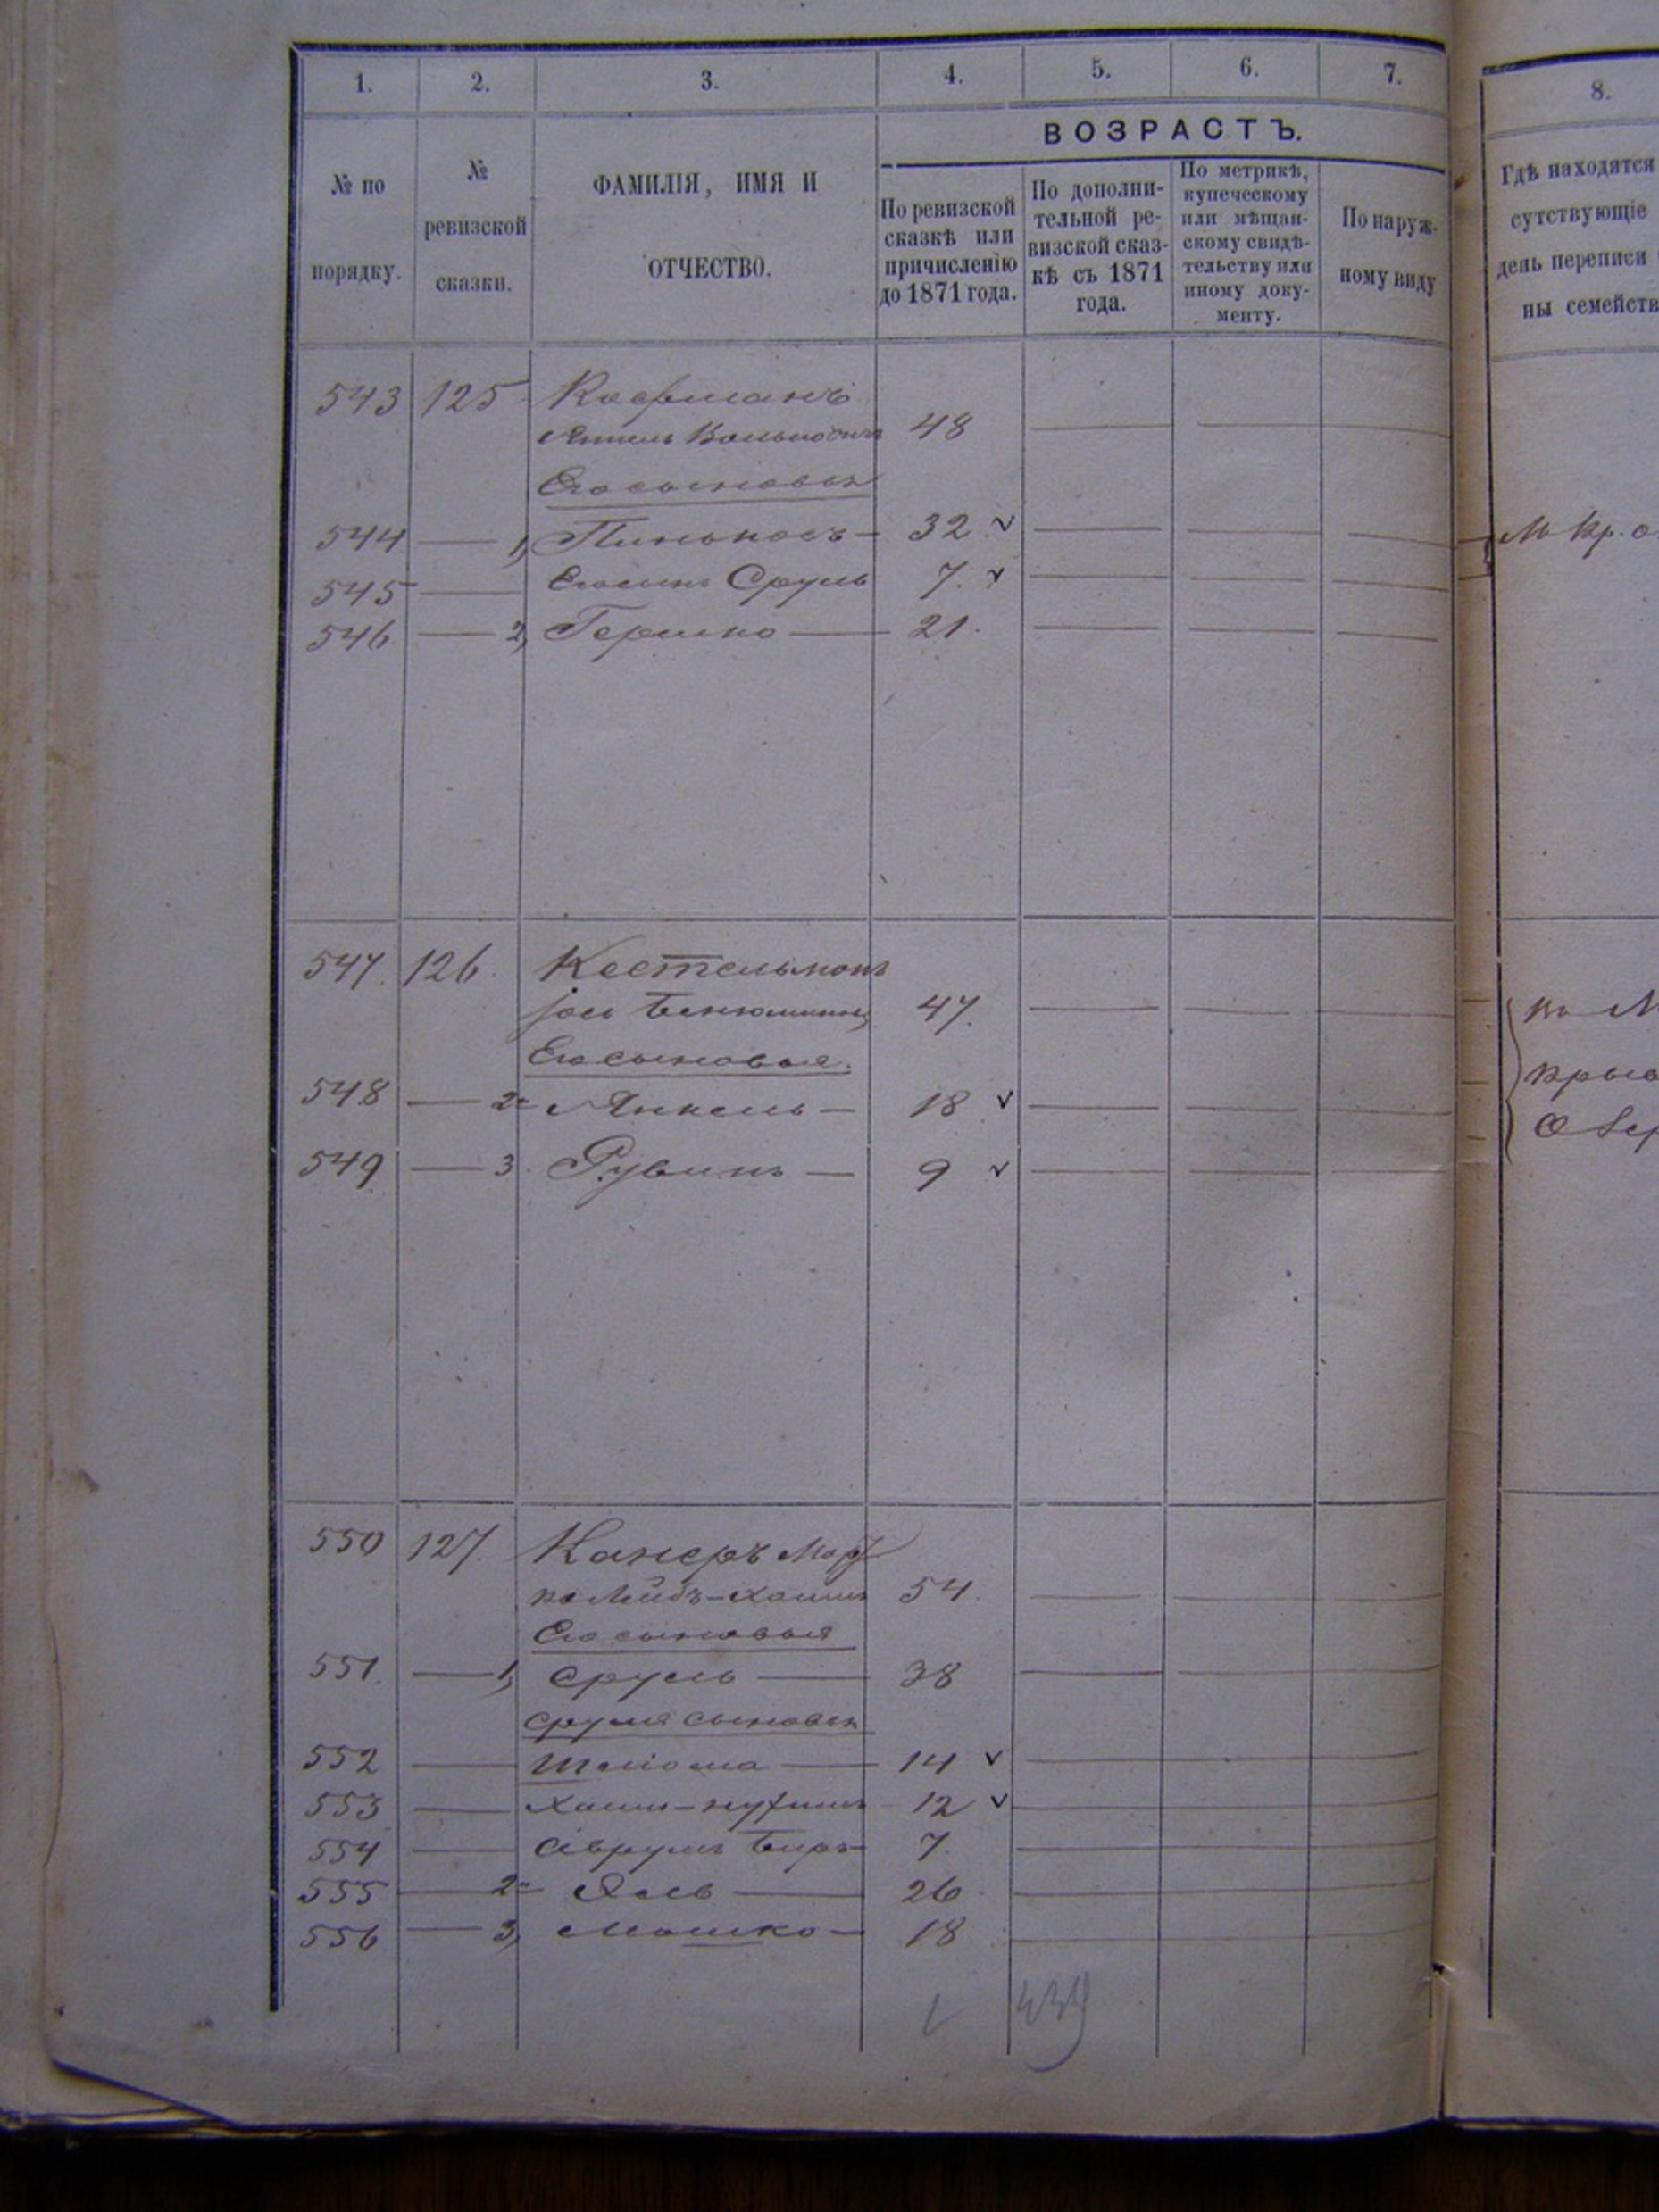 1. 2. 3. 4. 5. 6. 7. 8.
ВОЗРАСТЪ.
№ по порядку.
№ ревизской сказки.
ФАМИЛІЯ, ИМЯ И ОТЧЕСТВО.
По ревизской сказкѣ или причисленію до 1871 года.
По дополни-
тельной ре-
визской сказ-
кѣ съ 1871
года.
По метрикѣ,
купеческому
или мѣщан-
скому свидѣ-
тельству или
иному доку-
менту.
По наруж-
ному виду
Гдѣ находятся
сутствующіе
день переписи
ны семейств
543 125 Кофманъ
48
Его сыновья
544 — 1, Пинькосъ — 32 v
545 — Его сынъ Сруль 7. v
546 — 2, Гершко — 21.
547. 126. Кестельманъ
Іось Бенюминов 47.
Его сыновья.
548 — 2- Янкель — 18 v
549 — 3. Рувинъ — 9 v
550 127. Канеръ Мор
ко Лейбъ-Хаимъ 54.
Его сыновья
551. — 1, Сруль — 38
Сруля сыновья
552 — Шліома — 14 v
553 — 12 v
554 — Аврумъ Беръ — 7.
555 — 2- — 26
556 — 3, Мошко — 18